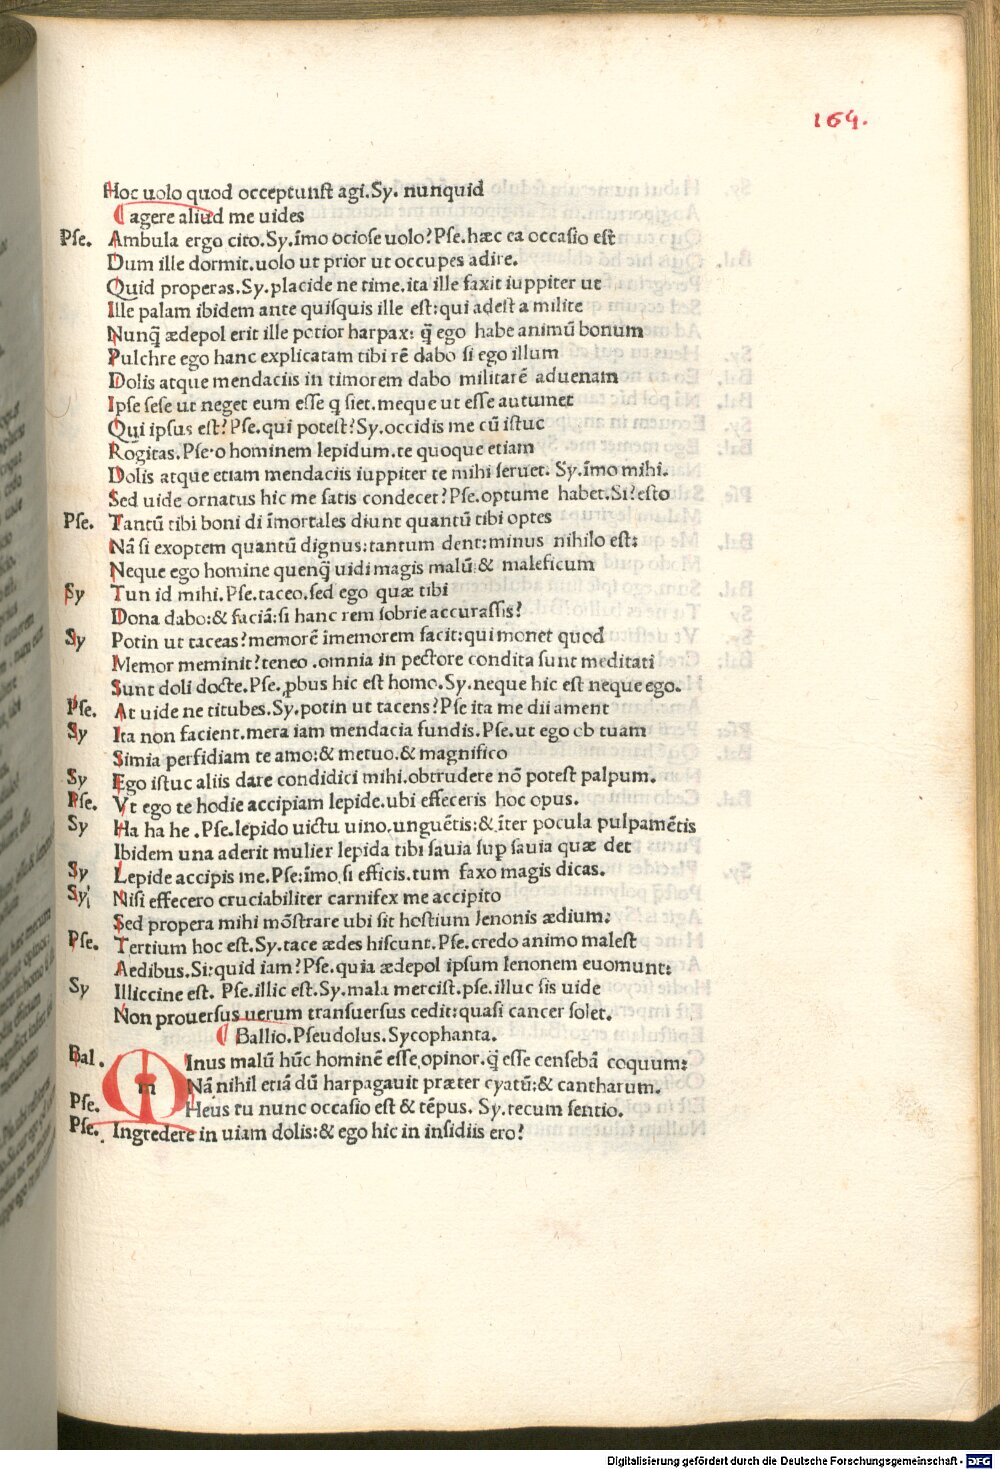 164.
Hoc uolo quod occeptunst agi.Sy. nunquid
¶ agere aliud me uides
Pse. Ambula ergo cito.Sy.īmo ociose uolo?Pse.hæc ea occasio est
Dum ille dormit.uolo ut prior ut occupes adire.
Quid properas.Sy.placide ne time.ita ille faxit iuppiter ut
Ille palam ibidem ante quisquis ille est:qui adest a milite
Nunq̄ ædepol erit ille potior harpax: q̄ ego habe animū bonum
Pulchre ego hanc explicatam tibi rē dabo si ego illum
Dolis atque mendaciis in timorem dabo militarē aduenam
Ipse sese ut neget eum esse q siet.meque ut esse autumet
Qui ipsus est?Pse.qui potest?Sy.occidis me cū istuc
Rogitas.Pse.o hominem lepidum.te quoque etiam
Dolis atque etiam mendaciis iuppiter te mihi seruet. Sy.īmo mihi.
Sed uide ornatus hic me satis condecet?Pse.optume habet.Si?esto
Pse. Tantū tibi boni di īmortales diunt quantū tibi optes
Nā si exoptem quantū dignus:tantum dent:minus nihilo est:
Neque ego homine quenq̄ uidi magis malū:& maleficum
Sy Tun id mihi.Pse.taceo.sed ego quæ tibi
Dona dabo:& faciā:si hanc rem sobrie accurassis?
Sy Potin ut taceas?memorē īmemorem facit:qui monet quod
Memor meminit?teneo .omnia in pectore condita sunt meditati
Sunt doli docte.Pse.ꝓbus hic est homo.Sy.neque hic est neque ego.
Pse. At uide ne titubes.Sy.potin ut tacens?Pse ita me dii ament
Sy Ita non facient.mera iam mendacia fundis.Pse.ut ego ob tuam
Simia perfidiam te amo:& metuo.& magnifico
Sy Ego istuc aliis dare condidici mihi.obtrudere nō potest palpum.
Pse. Vt ego te hodie accipiam lepide.ubi effeceris hoc opus.
Sy Ha ha he .Pse.lepido uictu uino.unguētis:& īter pocula pulpamētis
Ibidem una aderit mulier lepida tibi sauia suꝑ sauia quæ det
Sy Lepide accipis me.Pse:īmo si efficis.tum faxo magis dicas.
Sy Nisi effecero cruciabiliter carnifex me accipito
Sed propera mihi mōstrare ubi sit hostium lenonis ædium:
Pse. Tertium hoc est.Sy.tace ædes hiscunt.Pse.credo animo malest
Aedibus.Si:quid iam?Pse.quia ædepol ipsum lenonem euomunt:
Sy Illiccine est. Pse.illic est.Sy.mala mercist.pse.illuc sis uide
Non prouersus uerum transuersus cedit:quasi cancer solet.
¶ Ballio.Pseudolus.Sycophanta.
Bal. Minus malū hūc hominē esse opinor.q̄ esse censebā coquum:
Nā nihil etiā dū harpagauit præter cyatū:& cantharum.
Pse. Heus tu nunc occasio est & tēpus. Sy.tecum sentio.
Pse. Ingredere in uiam dolis:& ego hic in insidiis ero?
Digitalisierung gefördert durch die Deutsche Forschungsgemeinschaft - DFG